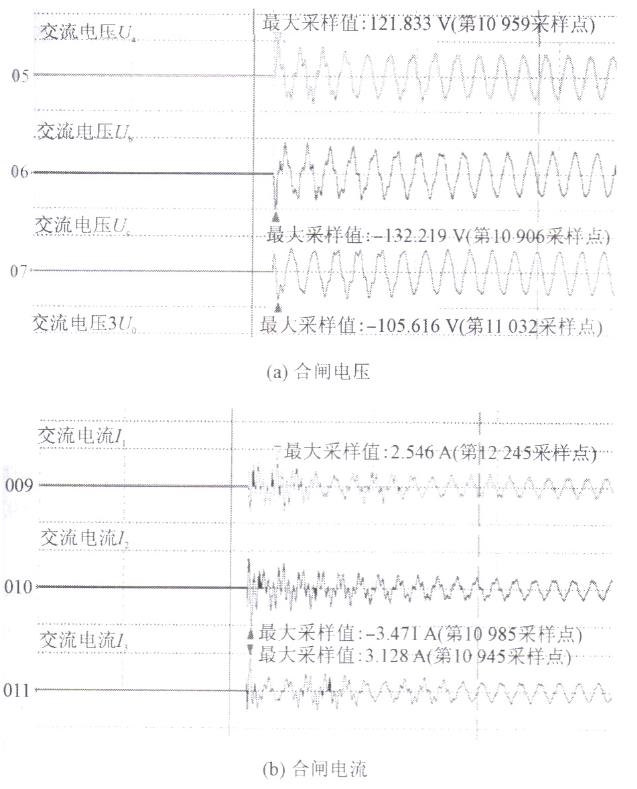 交流电压Uₐ
最大采样值:121.833 V(第10 959采样点)
05
交流电压U_b
06
交流电压U_c
最大采样值:-132.219 V(第10 906采样点)
07
交流电压3U₀
最大采样值:-105.616 V(第11 032采样点)
(a) 合闸电压
交流电流I₁
最大采样值:2.546 A(第12 245采样点)
009
交流电流I₂
010
最大采样值:-3.471 A(第10 985采样点)
交流电流I₃
最大采样值:3.128 A(第10 945采样点)
011
(b) 合闸电流